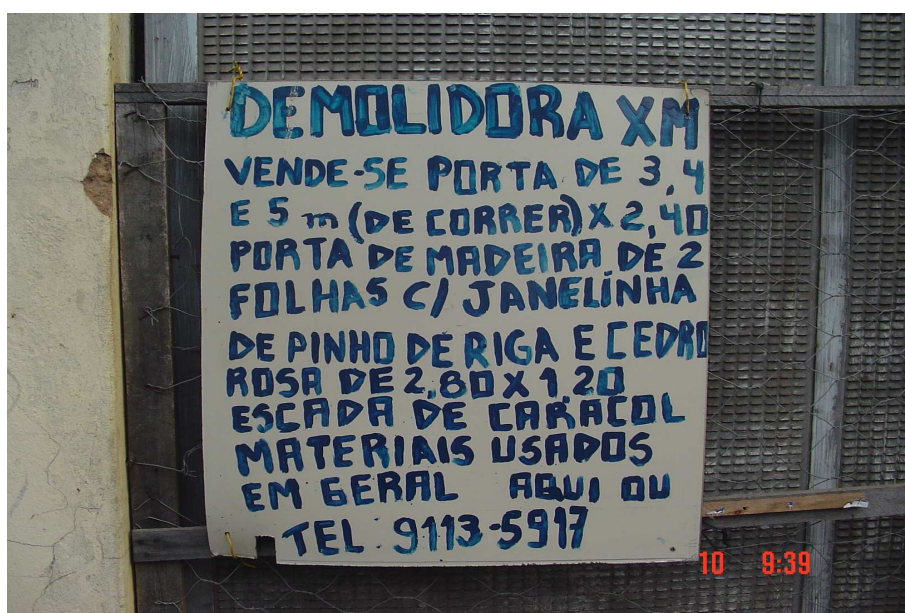 DEMOLIDORA XM
VENDE-SE PORTA DE 3,4
E 5 m (DE CORRER) X 2,40
PORTA DE MADEIRA DE 2
FOLHAS C/ JANELINHA
DE PINHO DE RIGA E CEDRO
ROSA DE 2,80 X 1,20
ESCADA DE CARACOL
MATERIAIS USADOS
EM GERAL AQUI OU
TEL 9113-5917
10 9:39